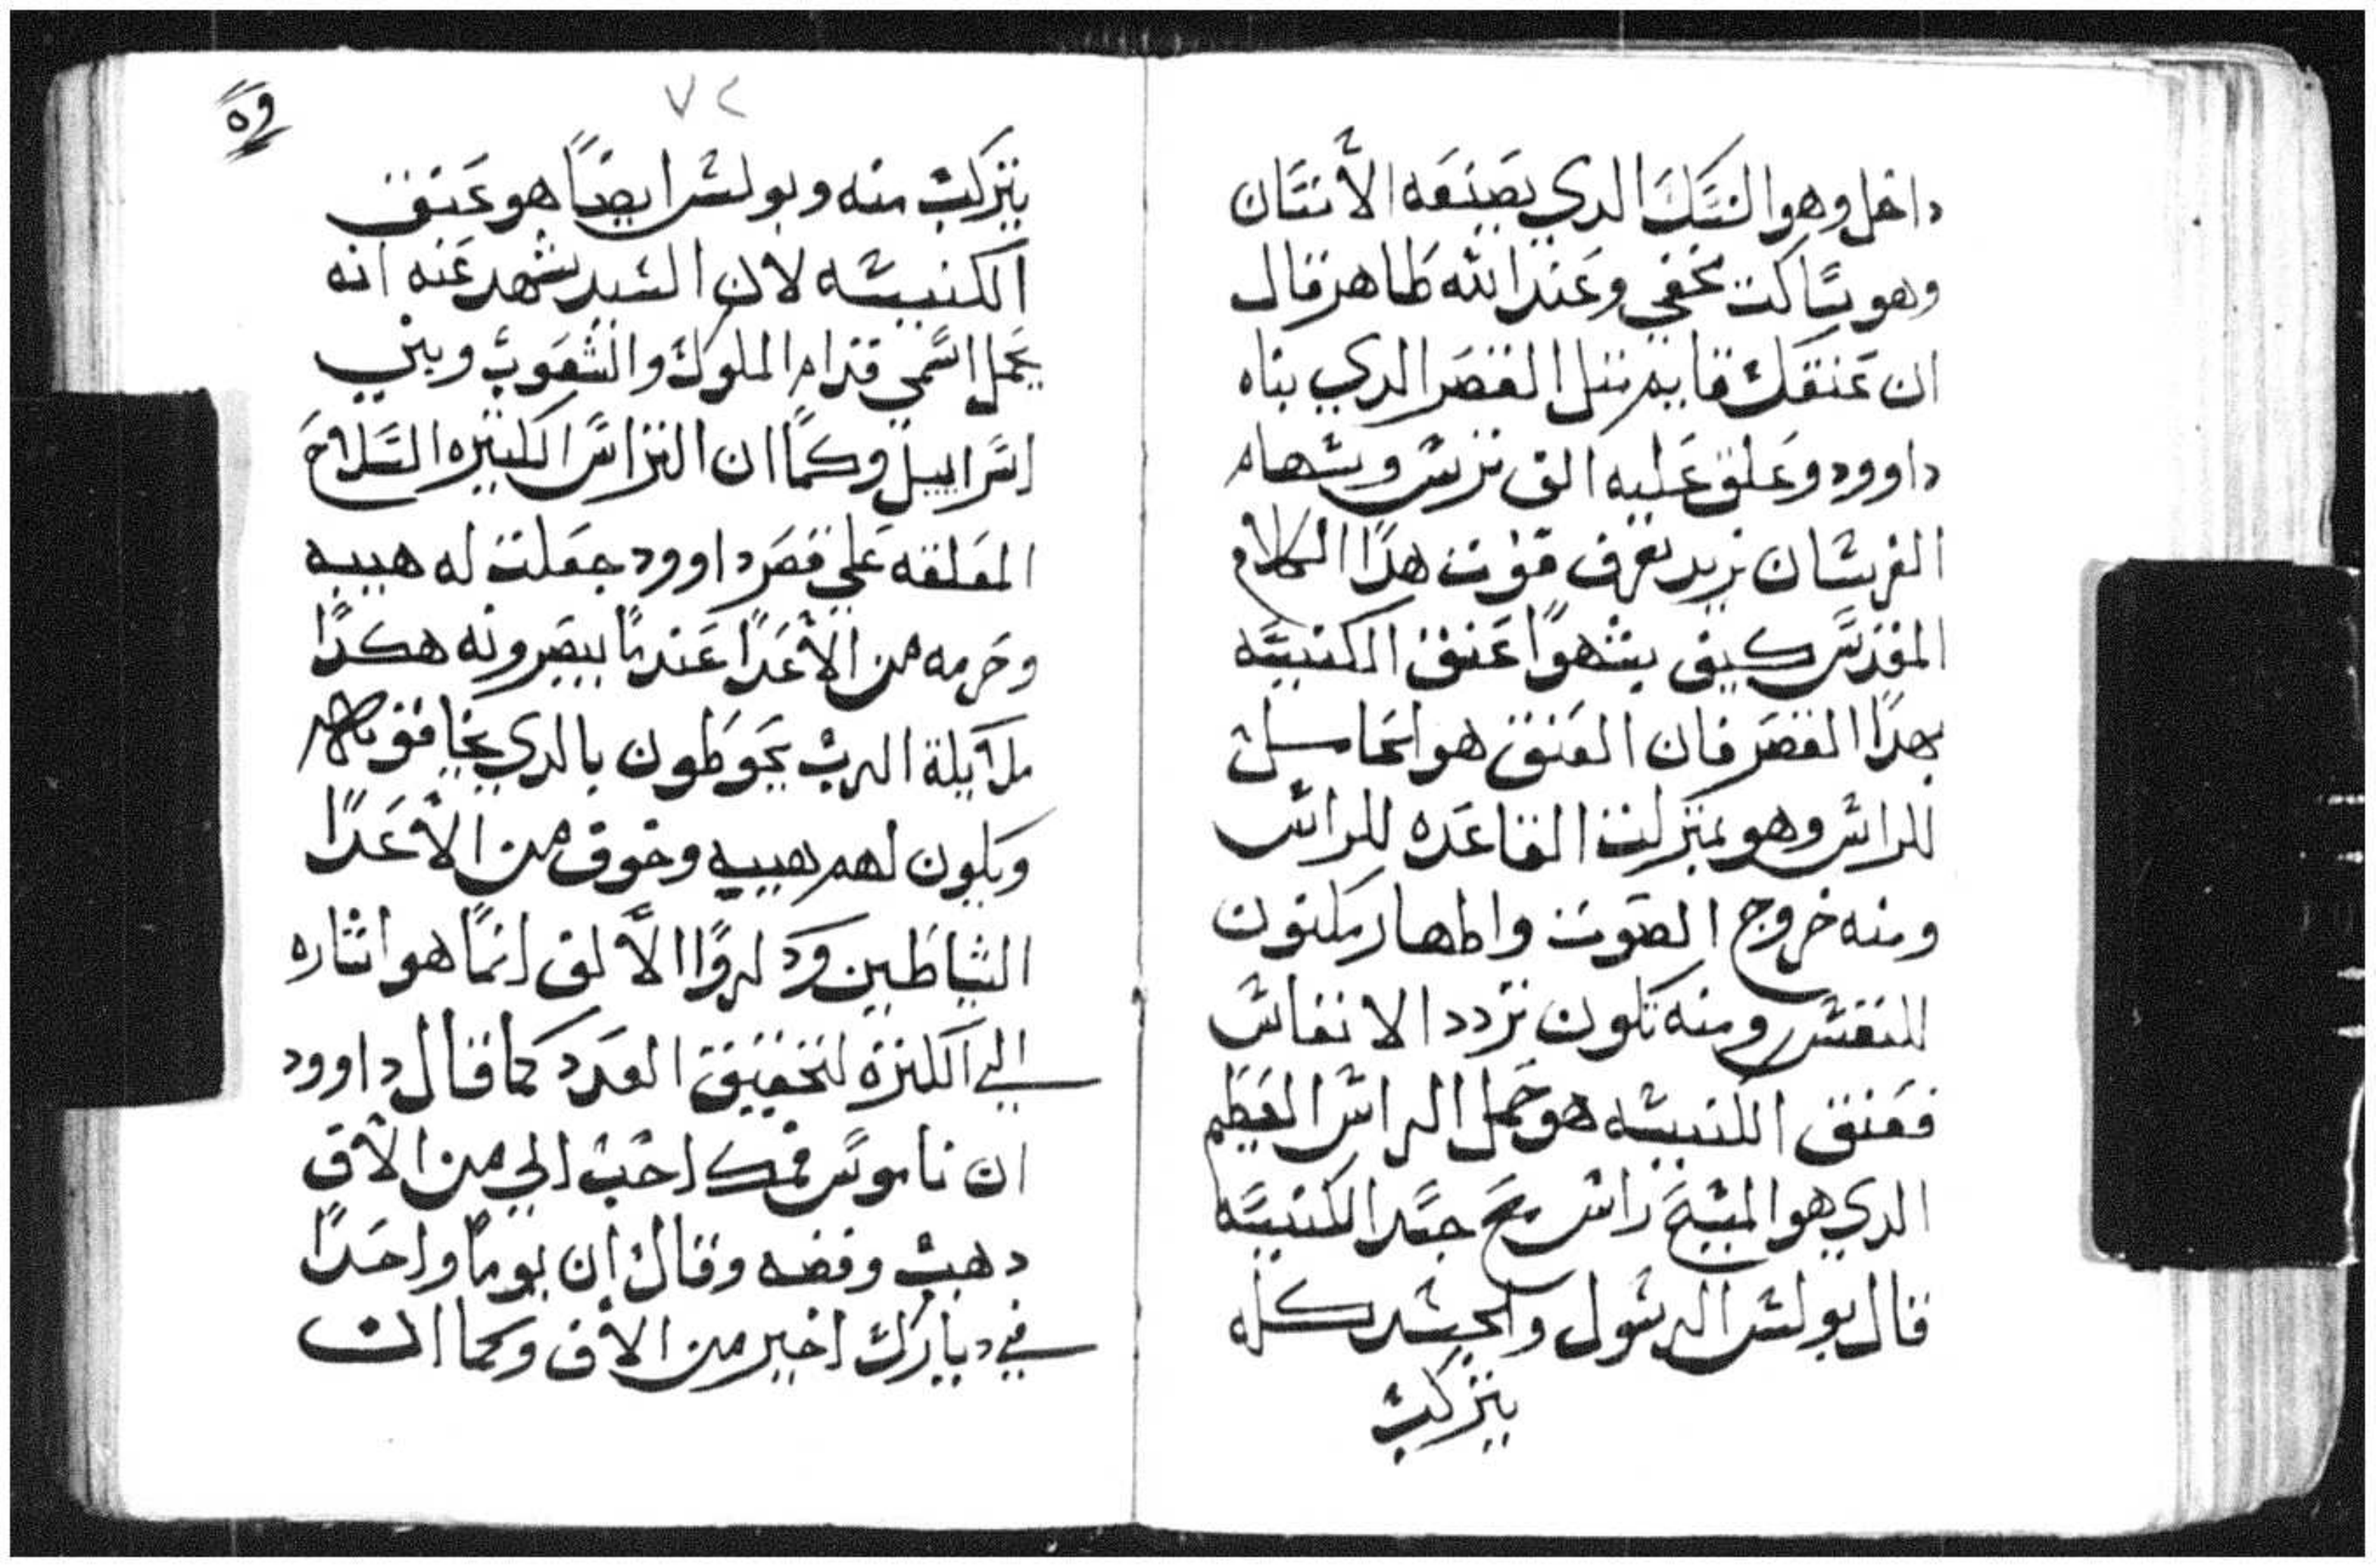 داخل وهو النسك الدي يصنعه الانسان
وهو ساكت مخفي وعند الله ظاهر قال
ان عنقك قايم مثل القصر الدي بناه
داوود وعلق عليه الف ترس وسهام
الفرسان نريد نعرف قوت هدا الكلام
المقدس كيف يشهوا عنق الكنيسه
بهدا القصر فان العنق هو الحامل
للراس وهو بمنزلت القاعده للراس
ومنه خروج الصوت واطهار مكنون
للنفس ومنه تكون تردد الانفاس
فعنق الكنيسه هو حمل الراس العظيم
الدي هو المسيح راس جسد الكنيسه
قال بولس الرسول والجسد كله
يتركب
٧٢
يتركب منه وبولس ايضاً هو عنق
الكنيسه لان السيد شهد عنه انه
يحمل اسمي قدام الملوك والشعوب وبني
اسراييل وكما ان التراس الكتيره السلاح
المعلقه علي قصر داوود جعلت له هيبه
وحرمه من الأعدا عندما يبصرونه هكدا
ملايكة الرب يحوطون بالدي يخافونهم
ويكون لهم هيبه وخوف من الأعدا
الشياطين ودكروا الألف انما هو اشاره
الي الكترة لتحقيق العدد كما قال داوود
ان ناموس فمك احب الي من الاف
دهب وفضه وقال ان يوماً واحداً
في ديارك اخير من الاف وكما ان